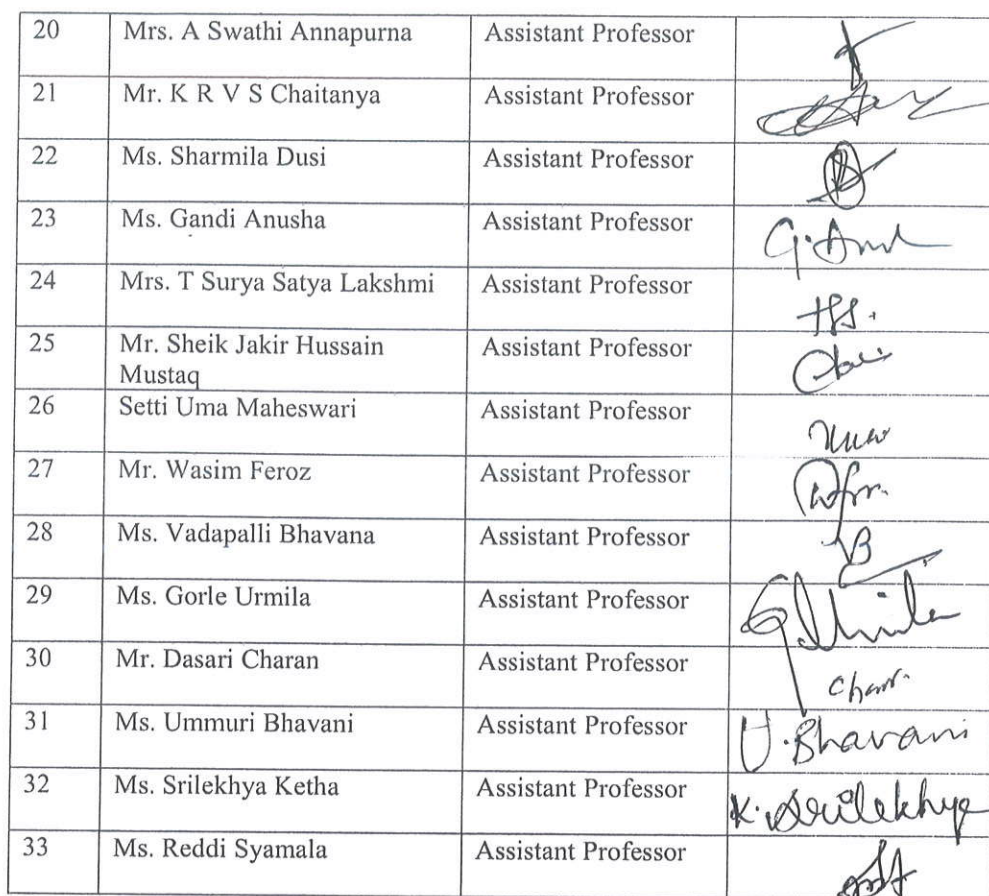 20 Mrs. A Swathi Annapurna Assistant Professor
21 Mr. K R V S Chaitanya Assistant Professor
22 Ms. Sharmila Dusi Assistant Professor
23 Ms. Gandi Anusha Assistant Professor
24 Mrs. T Surya Satya Lakshmi Assistant Professor
25 Mr. Sheik Jakir Hussain Assistant Professor
Mustaq
26 Setti Uma Maheswari Assistant Professor
27 Mr. Wasim Feroz Assistant Professor
28 Ms. Vadapalli Bhavana Assistant Professor
29 Ms. Gorle Urmila Assistant Professor
30 Mr. Dasari Charan Assistant Professor
31 Ms. Ummuri Bhavani Assistant Professor U.Bhavani
32 Ms. Srilekhya Ketha Assistant Professor K.Srilekhya
33 Ms. Reddi Syamala Assistant Professor